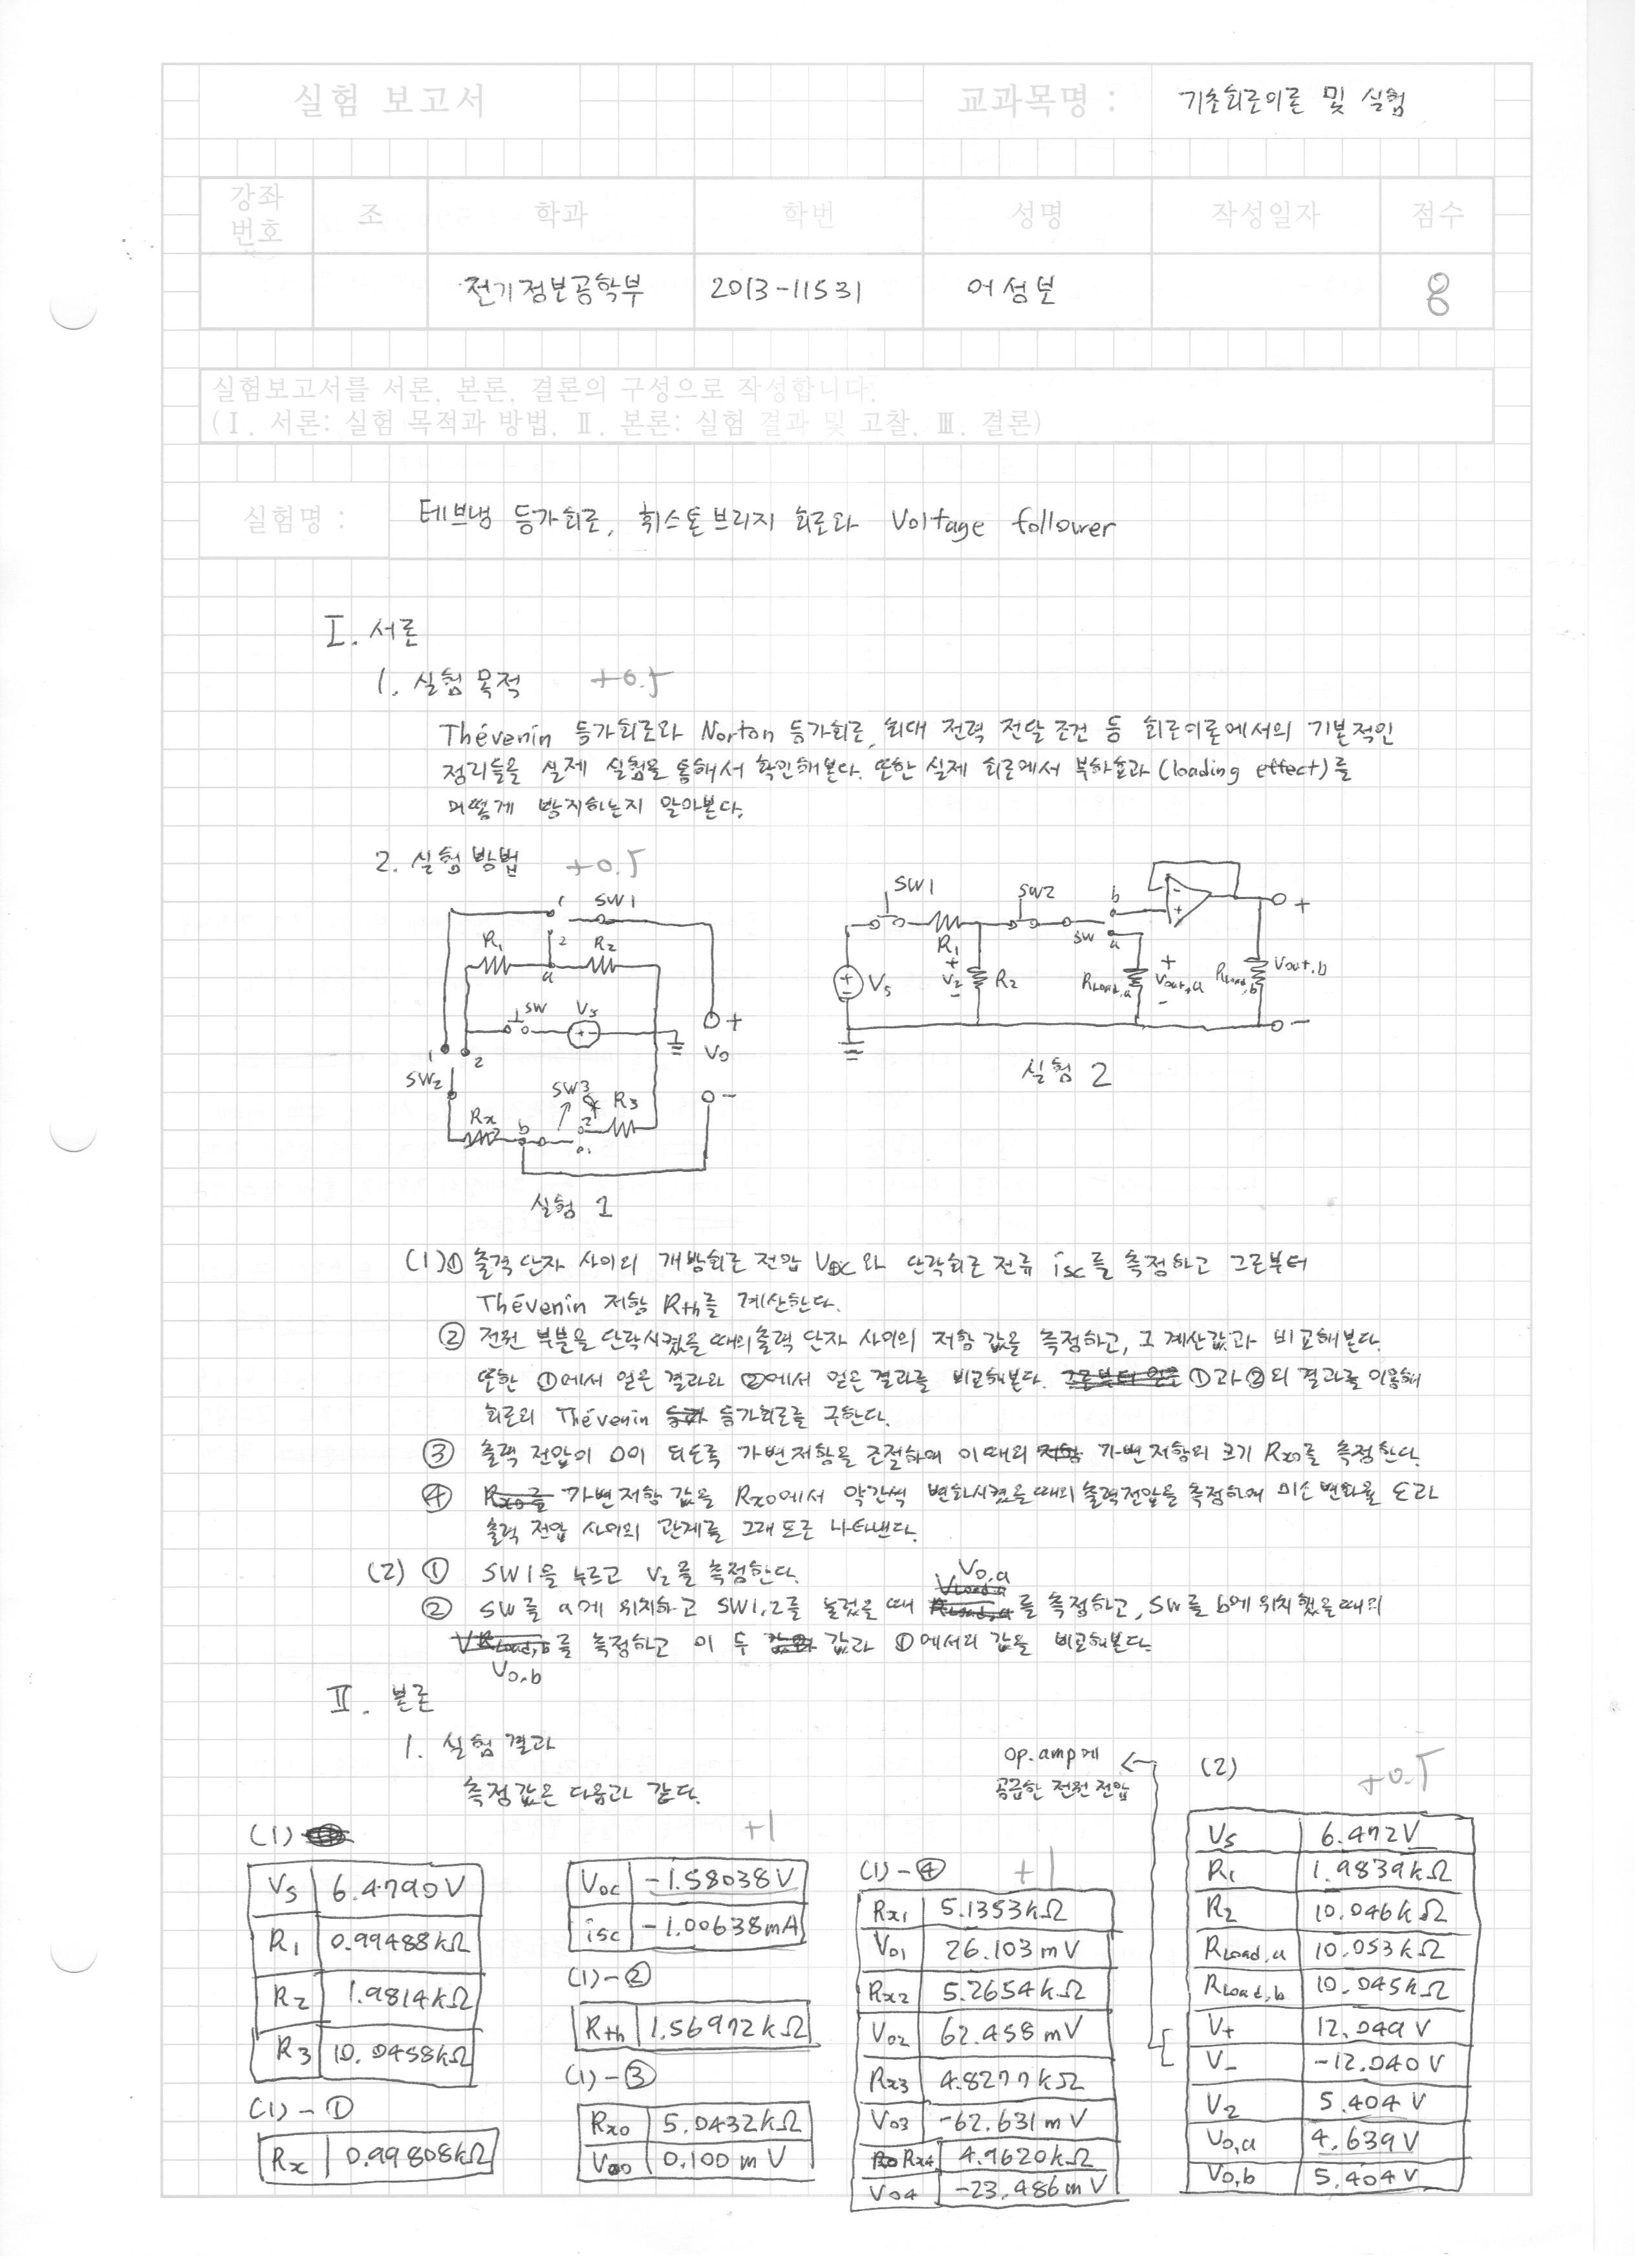 실험 보고서
교과목명 : 기초회로이론 및 실험
강좌번호 조 학과 학번 성명 작성일자 점수
전기정보공학부 2013-11531 어성보 8
실험보고서를 서론, 본론, 결론의 구성으로 작성합니다.
(Ⅰ. 서론: 실험 목적과 방법, Ⅱ. 본론: 실험 결과 및 고찰, Ⅲ. 결론)
실험명 : 테브냉 등가회로, 휘스톤 브리지 회로와 Voltage follower
Ⅰ. 서론
1. 실험 목적 +0.5
Thévenin 등가회로와 Norton 등가회로, 최대 전력 전달 조건 등 회로이론에서의 기본적인
정리들을 실제 실험을 통해서 확인해본다. 또한 실제 회로에서 부하효과(loading effect)를
어떻게 방지하는지 알아본다.
2. 실험 방법 +0.5
1 SW1
R1 2 R2
a
SW Vs
+ -
1 2
SW2
Vo
+
-
SW3
R3
2
Rx b
실험 1
SW1 SW2 b
- +
R1 SW a
Vs + V2 - R2 RLoad,a + Vout,a - RLoad,b Vout,b
+
-
실험 2
(1)① 출력 단자 사이의 개방회로 전압 Voc와 단락회로 전류 isc를 측정하고 그로부터
Thévenin 저항 Rth를 계산한다.
② 전원 부분을 단락시켰을 때의 출력 단자 사이의 저항 값을 측정하고, 그 계산값과 비교해본다.
또한 ①에서 얻은 결과와 ②에서 얻은 결과를 비교해본다. ①과 ②의 결과를 이용해
회로의 Thévenin 등가회로를 구한다.
③ 출력 전압이 0이 되도록 가변저항을 조절하여 이때의 가변 저항의 크기 Rx0를 측정한다.
④ 가변저항 값을 Rx0에서 약간씩 변화시켰을 때의 출력전압을 측정하여 미소 변화율 ε과
출력 전압 사이의 관계를 그래프로 나타낸다.
(2) ① SW1을 누르고 V2를 측정한다.
② SW를 a에 위치하고 SW1,2를 눌렀을 때 Vo,a를 측정하고, SW를 b에 위치했을 때의
Vo,b를 측정하고 이 두 값과 ①에서의 값을 비교해본다.
Ⅱ. 본론
1. 실험 결과
측정값은 다음과 같다.
(1)
Vs 6.4790V
R1 0.99488kΩ
R2 1.9814kΩ
R3 10.0458kΩ
(1)-①
Rx 0.99808kΩ
+1
Voc -1.58038V
isc -1.00638mA
(1)-②
Rth 1.56972kΩ
(1)-③
Rx0 5.0432kΩ
Vo0 0.100mV
(1)-④ +1
Rx1 5.1353kΩ
Vo1 26.103mV
Rx2 5.2654kΩ
Vo2 62.458mV
Rx3 4.8277kΩ
Vo3 -62.631mV
Rx4 4.9620kΩ
Vo4 -23.486mV
op.amp에 공급한 전원 전압
(2) +0.5
Vs 6.472V
R1 1.9839kΩ
R2 10.046kΩ
RLoad,a 10.053kΩ
RLoad,b 10.045kΩ
V+ 12.049V
V- -12.040V
V2 5.404V
Vo,a 4.639V
Vo,b 5.404V